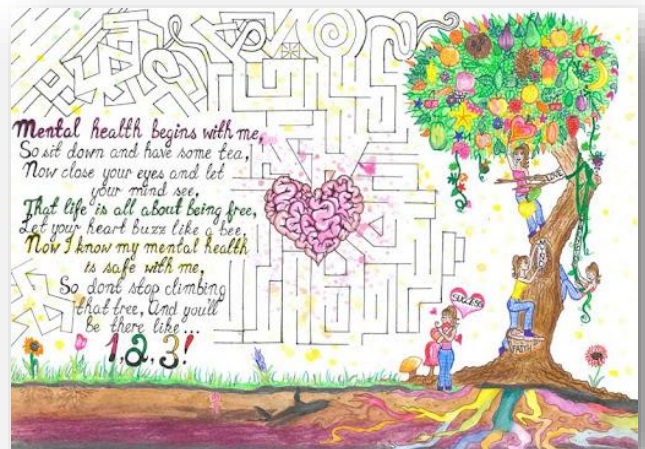 Mental health begins with me,
So sit down and have some tea,
Now close your eyes and let
your mind see,
That life is all about being free,
Let your heart buzz like a bee,
Now I know my mental health
is safe with me,
So dont stop climbing
that tree, And you'll
be there like...
1,2,3!
LOVE
SUCCESS
FAITH